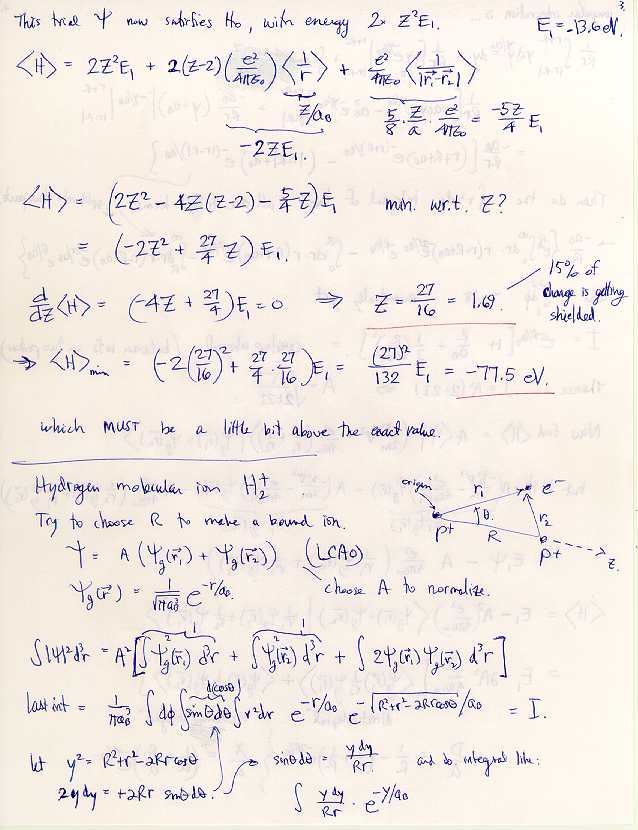 3.
This trial Ψ now satisfies H₀, with energy 2× Z²E₁. E₁ = -13.6 eV.
⟨H⟩ = 2Z²E₁ + 2(Z-2)(e²/4πε₀)⟨1/r⟩ + e²/4πε₀ ⟨1/|r⃗₁-r⃗₂|⟩
Z/a₀ 5/8 · Z/a · e²/4πε₀ = -5Z/4 E₁
-2ZE₁.
⟨H⟩ = (2Z² - 4Z(Z-2) - 5/4 Z) E₁ min. w.r.t. Z?
= (-2Z² + 27/4 Z) E₁.
d/dZ ⟨H⟩ = (-4Z + 27/4) E₁ = 0 ⇒ Z = 27/16 = 1.69. 15% of
change is getting
shielded.
⇒ ⟨H⟩min = (-2(27/16)² + 27/4 · 27/16) E₁ = (27)²/132 E₁ = -77.5 eV.
which MUST be a little bit above the exact value.
Hydrogen molecular ion H₂⁺.
origin r₁ e⁻
θ r₂
p+ R p+
z.
Try to choose R to make a bound ion.
Ψ = A (Ψg(r⃗₁) + Ψg(r⃗₂)) (LCAO)
Ψg(r⃗) = 1/√πa₀³ e^(-r/a₀). choose A to normalize.
1 1
∫|Ψ|²d³r = A² [∫Ψg²(r⃗₁) d³r + ∫Ψg²(r⃗₂) d³r + ∫2Ψg(r⃗₁)Ψg(r⃗₂) d³r]
d(cosθ)
last int = 1/πa₀³ ∫dφ ∫sinθdθ ∫r²dr e^(-r/a₀) e^(-√(R²+r²-2Rrcosθ)/a₀) = I.
let y² = R²+r²-2Rr cosθ sinθdθ = y dy/Rr. and do integral like:
2y dy = +2Rr sinθdθ. ∫ y dy/Rr · e^(-y/a₀)